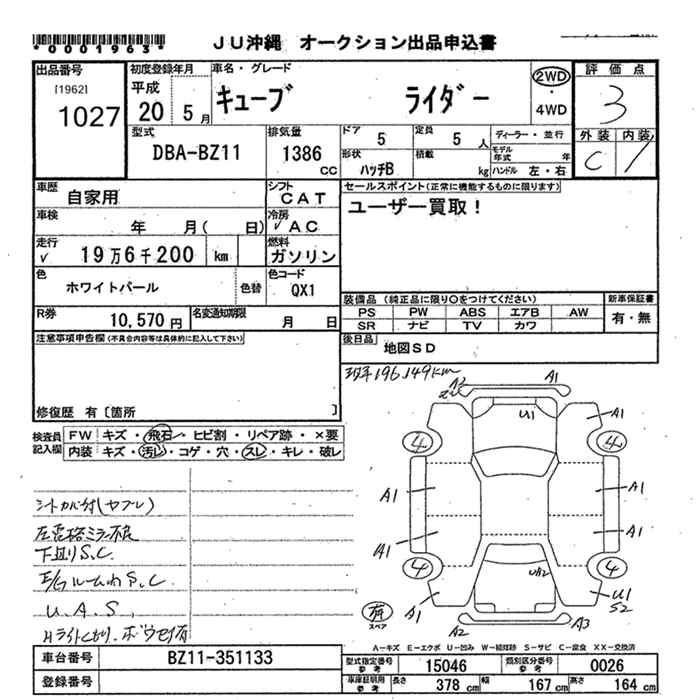 *0001963*
JU沖縄 オークション出品申込書
出品番号 初度登録年月 車名・グレード 評価点
[1962] 平成 2WD
1027 20 5月 キューブ ライダー ・ 3
4WD
型式 排気量 ドア 5 定員 5人 ディーラー・並行 外装 内装
モデル年式 年
DBA-BZ11 1386cc 形状 ハッチB 積載 kg ハンドル 左・右 C 1
車歴 自家用 シフト CAT セールスポイント(正常に機能するものに限ります)
車検 年 月( 日) 冷房 ✓AC ユーザー買取!
走行 ✓ 19万6千200 km 燃料 ガソリン
色 ホワイトパール 色替 色コード QX1
装備品(純正品に限り○をつけてください) 新車保証書
R券 10,570円 名変通知期限 月 日 PS PW ABS エアB AW 有・無
SR ナビ TV カワ
注意事項申告欄(不具合内容等は具体的に記入して下さい) 後日品 地図SD
196,149km
修復歴 有[箇所 ]
検査員記入欄 FW キズ・飛石・ヒビ割・リペア跡・×要
内装 キズ・汚れ・コゲ・穴・スレ・キレ・破レ
A2 A1
U1
A1 A1
4 4
A1 A1
A1 A1
4 4
U2
A1 U1
S2
A2 A3
有
スペア
シートカバー付(ヤブレ)
下廻りS.C.
E/gルーム内S.C.
U.A.S.
A-キズ E-エクボ U-凹み W-補修跡 S-サビ C-腐食 XX-交換済
車台番号 BZ11-351133 型式指定番号 参考 15046 類別区分番号 参考 0026
登録番号 車庫証明用 参考 長さ 378 cm 幅 167 cm 高さ 164 cm